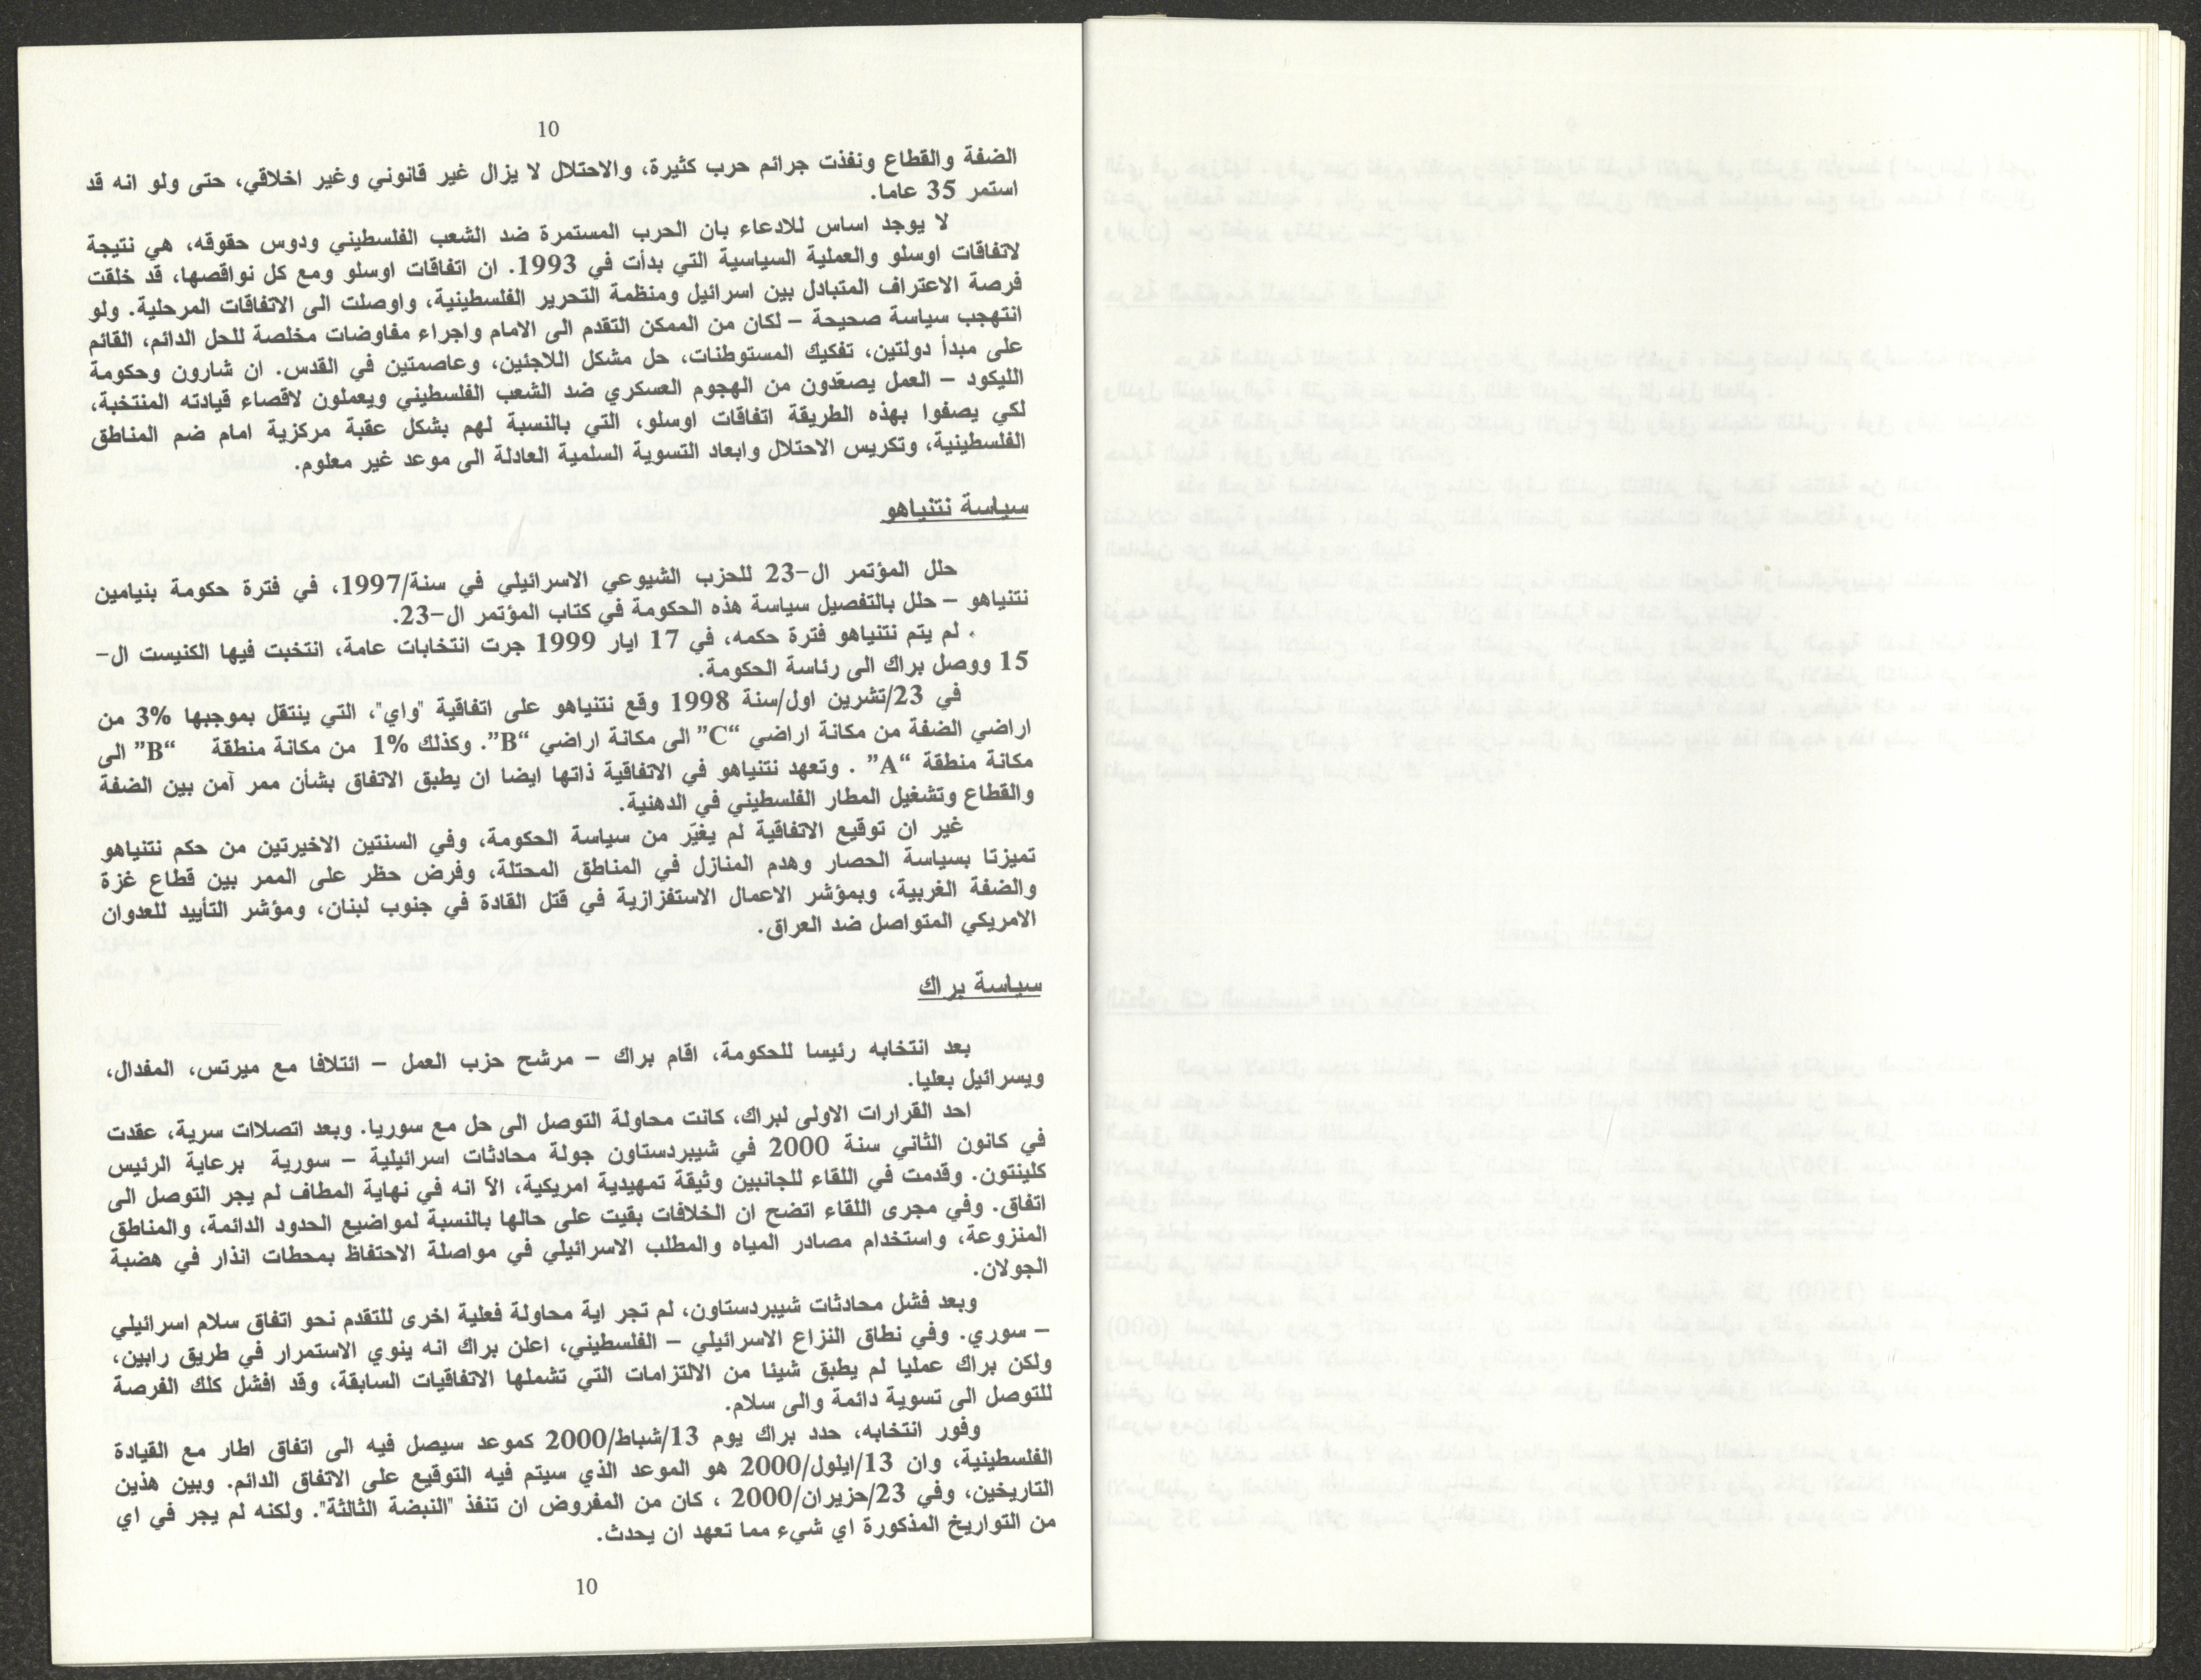 10
الضفة والقطاع ونفذت جرائم حرب كثيرة، والاحتلال لا يزال غير قانوني وغير اخلاقي، حتى ولو انه قد
استمر 35 عاما.
لا يوجد اساس للادعاء بان الحرب المستمرة ضد الشعب الفلسطيني ودوس حقوقه، هي نتيجة
لاتفاقات اوسلو والعملية السياسية التي بدأت في 1993. ان اتفاقات اوسلو ومع كل نواقصها، قد خلقت
فرصة الاعتراف المتبادل بين اسرائيل ومنظمة التحرير الفلسطينية، واوصلت الى الاتفاقات المرحلية. ولو
انتهجب سياسة صحيحة – لكان من الممكن التقدم الى الامام واجراء مفاوضات مخلصة للحل الدائم، القائم
على مبدأ دولتين، تفكيك المستوطنات، حل مشكل اللاجئين، وعاصمتين في القدس. ان شارون وحكومة
الليكود – العمل يصعّدون من الهجوم العسكري ضد الشعب الفلسطيني ويعملون لاقصاء قيادته المنتخبة،
لكي يصفوا بهذه الطريقة اتفاقات اوسلو، التي بالنسبة لهم بشكل عقبة مركزية امام ضم المناطق
الفلسطينية، وتكريس الاحتلال وابعاد التسوية السلمية العادلة الى موعد غير معلوم.
سياسة نتنياهو
حلل المؤتمر ال-23 للحزب الشيوعي الاسرائيلي في سنة/1997، في فترة حكومة بنيامين
نتنياهو – حلل بالتفصيل سياسة هذه الحكومة في كتاب المؤتمر ال-23.
لم يتم نتنياهو فترة حكمه، في 17 ايار 1999 جرت انتخابات عامة، انتخبت فيها الكنيست ال-
15 ووصل براك الى رئاسة الحكومة.
في 23/تشرين اول/سنة 1998 وقع نتنياهو على اتفاقية "واي"، التي ينتقل بموجبها 3% من
اراضي الضفة من مكانة اراضي “C” الى مكانة اراضي “B”. وكذلك 1% من مكانة منطقة “B” الى
مكانة منطقة “A” . وتعهد نتنياهو في الاتفاقية ذاتها ايضا ان يطبق الاتفاق بشأن ممر آمن بين الضفة
والقطاع وتشغيل المطار الفلسطيني في الدهنية.
غير ان توقيع الاتفاقية لم يغيّر من سياسة الحكومة، وفي السنتين الاخيرتين من حكم نتنياهو
تميزتا بسياسة الحصار وهدم المنازل في المناطق المحتلة، وفرض حظر على الممر بين قطاع غزة
والضفة الغربية، وبمؤشر الاعمال الاستفزازية في قتل القادة في جنوب لبنان، ومؤشر التأييد للعدوان
الامريكي المتواصل ضد العراق.
سياسة براك
بعد انتخابه رئيسا للحكومة، اقام براك – مرشح حزب العمل – ائتلافا مع ميرتس، المفدال،
ويسرائيل بعليا.
احد القرارات الاولى لبراك، كانت محاولة التوصل الى حل مع سوريا. وبعد اتصلاات سرية، عقدت
في كانون الثاني سنة 2000 في شيبردستاون جولة محادثات اسرائيلية – سورية برعاية الرئيس
كلينتون. وقدمت في اللقاء للجانبين وثيقة تمهيدية امريكية، الآ انه في نهاية المطاف لم يجر التوصل الى
اتفاق. وفي مجرى اللقاء اتضح ان الخلافات بقيت على حالها بالنسبة لمواضيع الحدود الدائمة، والمناطق
المنزوعة، واستخدام مصادر المياه والمطلب الاسرائيلي في مواصلة الاحتفاظ بمحطات انذار في هضبة
الجولان.
وبعد فشل محادثات شيبردستاون، لم تجر اية محاولة فعلية اخرى للتقدم نحو اتفاق سلام اسرائيلي
– سوري. وفي نطاق النزاع الاسرائيلي – الفلسطيني، اعلن براك انه ينوي الاستمرار في طريق رابين،
ولكن براك عمليا لم يطبق شيئا من الالتزامات التي تشملها الاتفاقيات السابقة، وقد افشل كلك الفرصة
للتوصل الى تسوية دائمة والى سلام.
وفور انتخابه، حدد براك يوم 13/شباط/2000 كموعد سيصل فيه الى اتفاق اطار مع القيادة
الفلسطينية، وان 13/ايلول/2000 هو الموعد الذي سيتم فيه التوقيع على الاتفاق الدائم. وبين هذين
التاريخين، وفي 23/حزيران/2000 ، كان من المفروض ان تنفذ "النبضة الثالثة". ولكنه لم يجر في اي
من التواريخ المذكورة اي شيء مما تعهد ان يحدث.
10